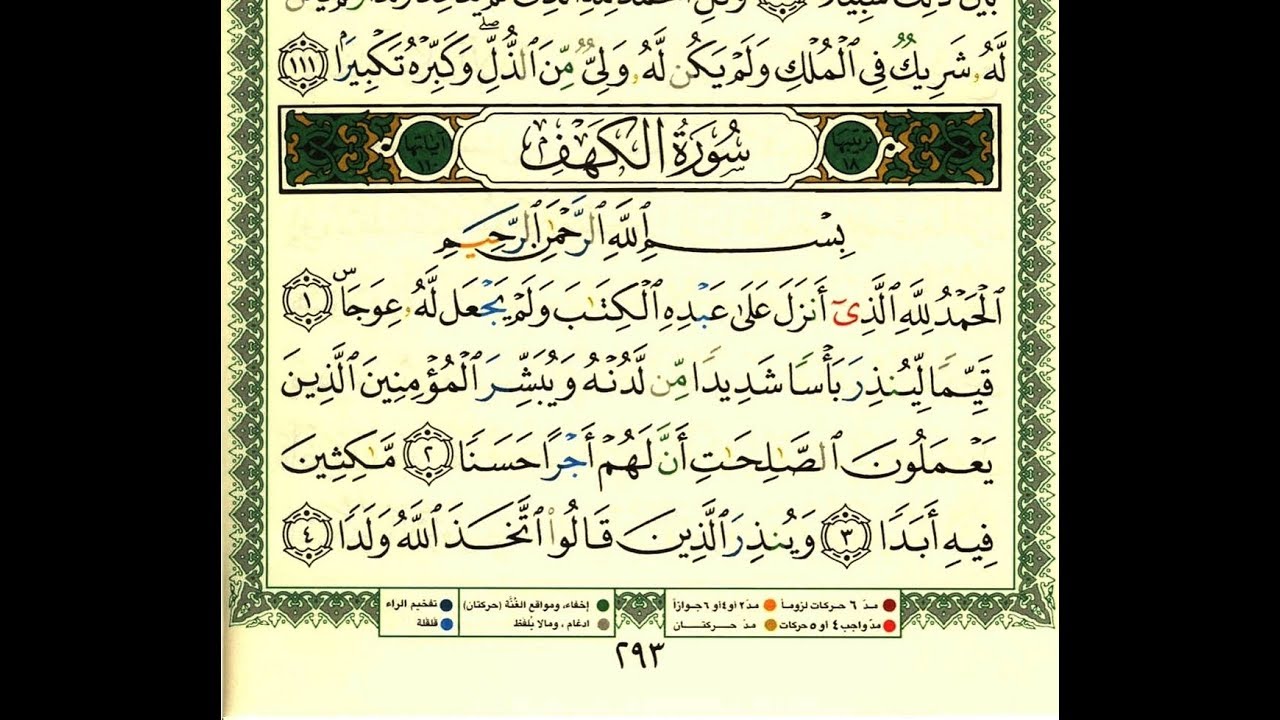 لَّهُۥ شَرِيكٌ فِى ٱلْمُلْكِ وَلَمْ يَكُن لَّهُۥ وَلِىٌّ مِّنَ ٱلذُّلِّ ۖ وَكَبِّرْهُ تَكْبِيرًۢا ١١١
ترتيبها ١٨ سُورَةُ الكَهْفِ آياتها ١١٠
بِسْمِ ٱللَّهِ ٱلرَّحْمَٰنِ ٱلرَّحِيمِ
ٱلْحَمْدُ لِلَّهِ ٱلَّذِىٓ أَنزَلَ عَلَىٰ عَبْدِهِ ٱلْكِتَٰبَ وَلَمْ يَجْعَل لَّهُۥ عِوَجَاۜ ١
قَيِّمًا لِّيُنذِرَ بَأْسًا شَدِيدًا مِّن لَّدُنْهُ وَيُبَشِّرَ ٱلْمُؤْمِنِينَ ٱلَّذِينَ
يَعْمَلُونَ ٱلصَّٰلِحَٰتِ أَنَّ لَهُمْ أَجْرًا حَسَنًا ٢ مَّٰكِثِينَ
فِيهِ أَبَدًا ٣ وَيُنذِرَ ٱلَّذِينَ قَالُوا۟ ٱتَّخَذَ ٱللَّهُ وَلَدًا ٤
مدّ ٦ حركات لزوماً مدّ ٢ أو ٤ أو ٦ جوازاً إخفاء، ومواقع الغُنَّة (حركتان) تفخيم الراء
مدّ واجب ٤ أو ٥ حركات مدّ حركتان ادغام، ومالا يُلفظ قلقلة
٢٩٣